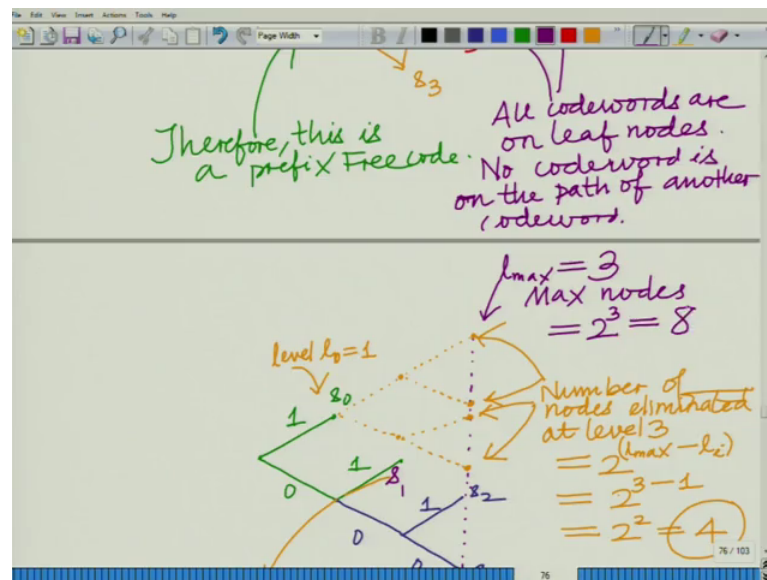 File Edit View Insert Actions Tools Help
Page Width
B I
s3
Therefore, this is
a prefix Free code.
All codewords are
on leaf nodes.
No codeword is
on the path of another
codeword.
lmax = 3
Max nodes
= 2^3 = 8
level l0 = 1
s0
1
0
1
s1
1
s2
0
0
Number of
nodes eliminated
at level 3
= 2^(lmax - li)
= 2^3-1
= 2^2 = 4
76 / 103
76